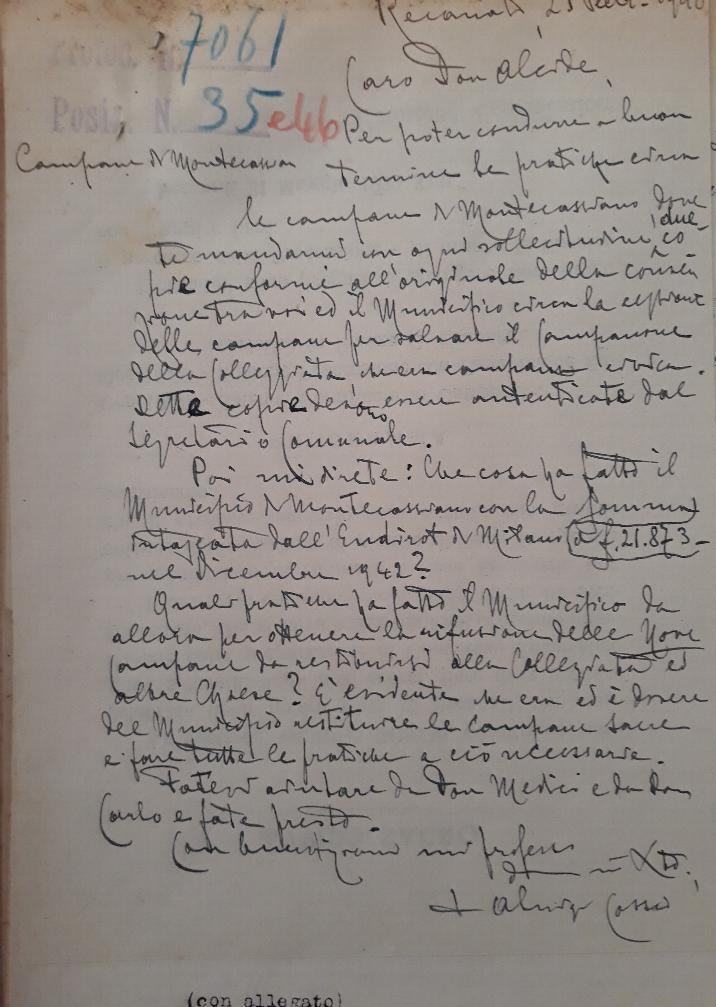 Recanati, 25
Protoc. N. 7061
Caro Don Alcide,
Posiz. N. 35 e 46
Per poter condurre a buon
Campane di Montecassiano
termine le pratiche circa
le campane di Montecassiano dove
te mandarmi con ogni sollecitudine, due co
pie conformi all'originale della conven
zione tra voi ed il Municipio circa la cessione
delle campane per salvare il Campanone
della Collegiata, che era campana civica.
Dette copie devono essere autenticate dal
Segretario Comunale.
Poi mi direte: Che cosa ha fatto il
Municipio di Montecassiano con la somma
intascata dall'Endirot di Milano di £. 21.873-
nel Dicembre 1942?
Quali pratiche ha fatto il Municipio da
allora per ottenere la rifusione delle Nove
Campane da restituirsi alla Collegiata ed
altre Chiese? E' evidente che era ed è dovere
del Municipio restituire le campane sacre
e fare tutte le pratiche a ciò necessarie.
Fatevi aiutare da Don Medici e da don
Carlo e fate presto.
Con benedizioni mi professo
in Xto.
+ Aluigi Cossio
(con allegato)